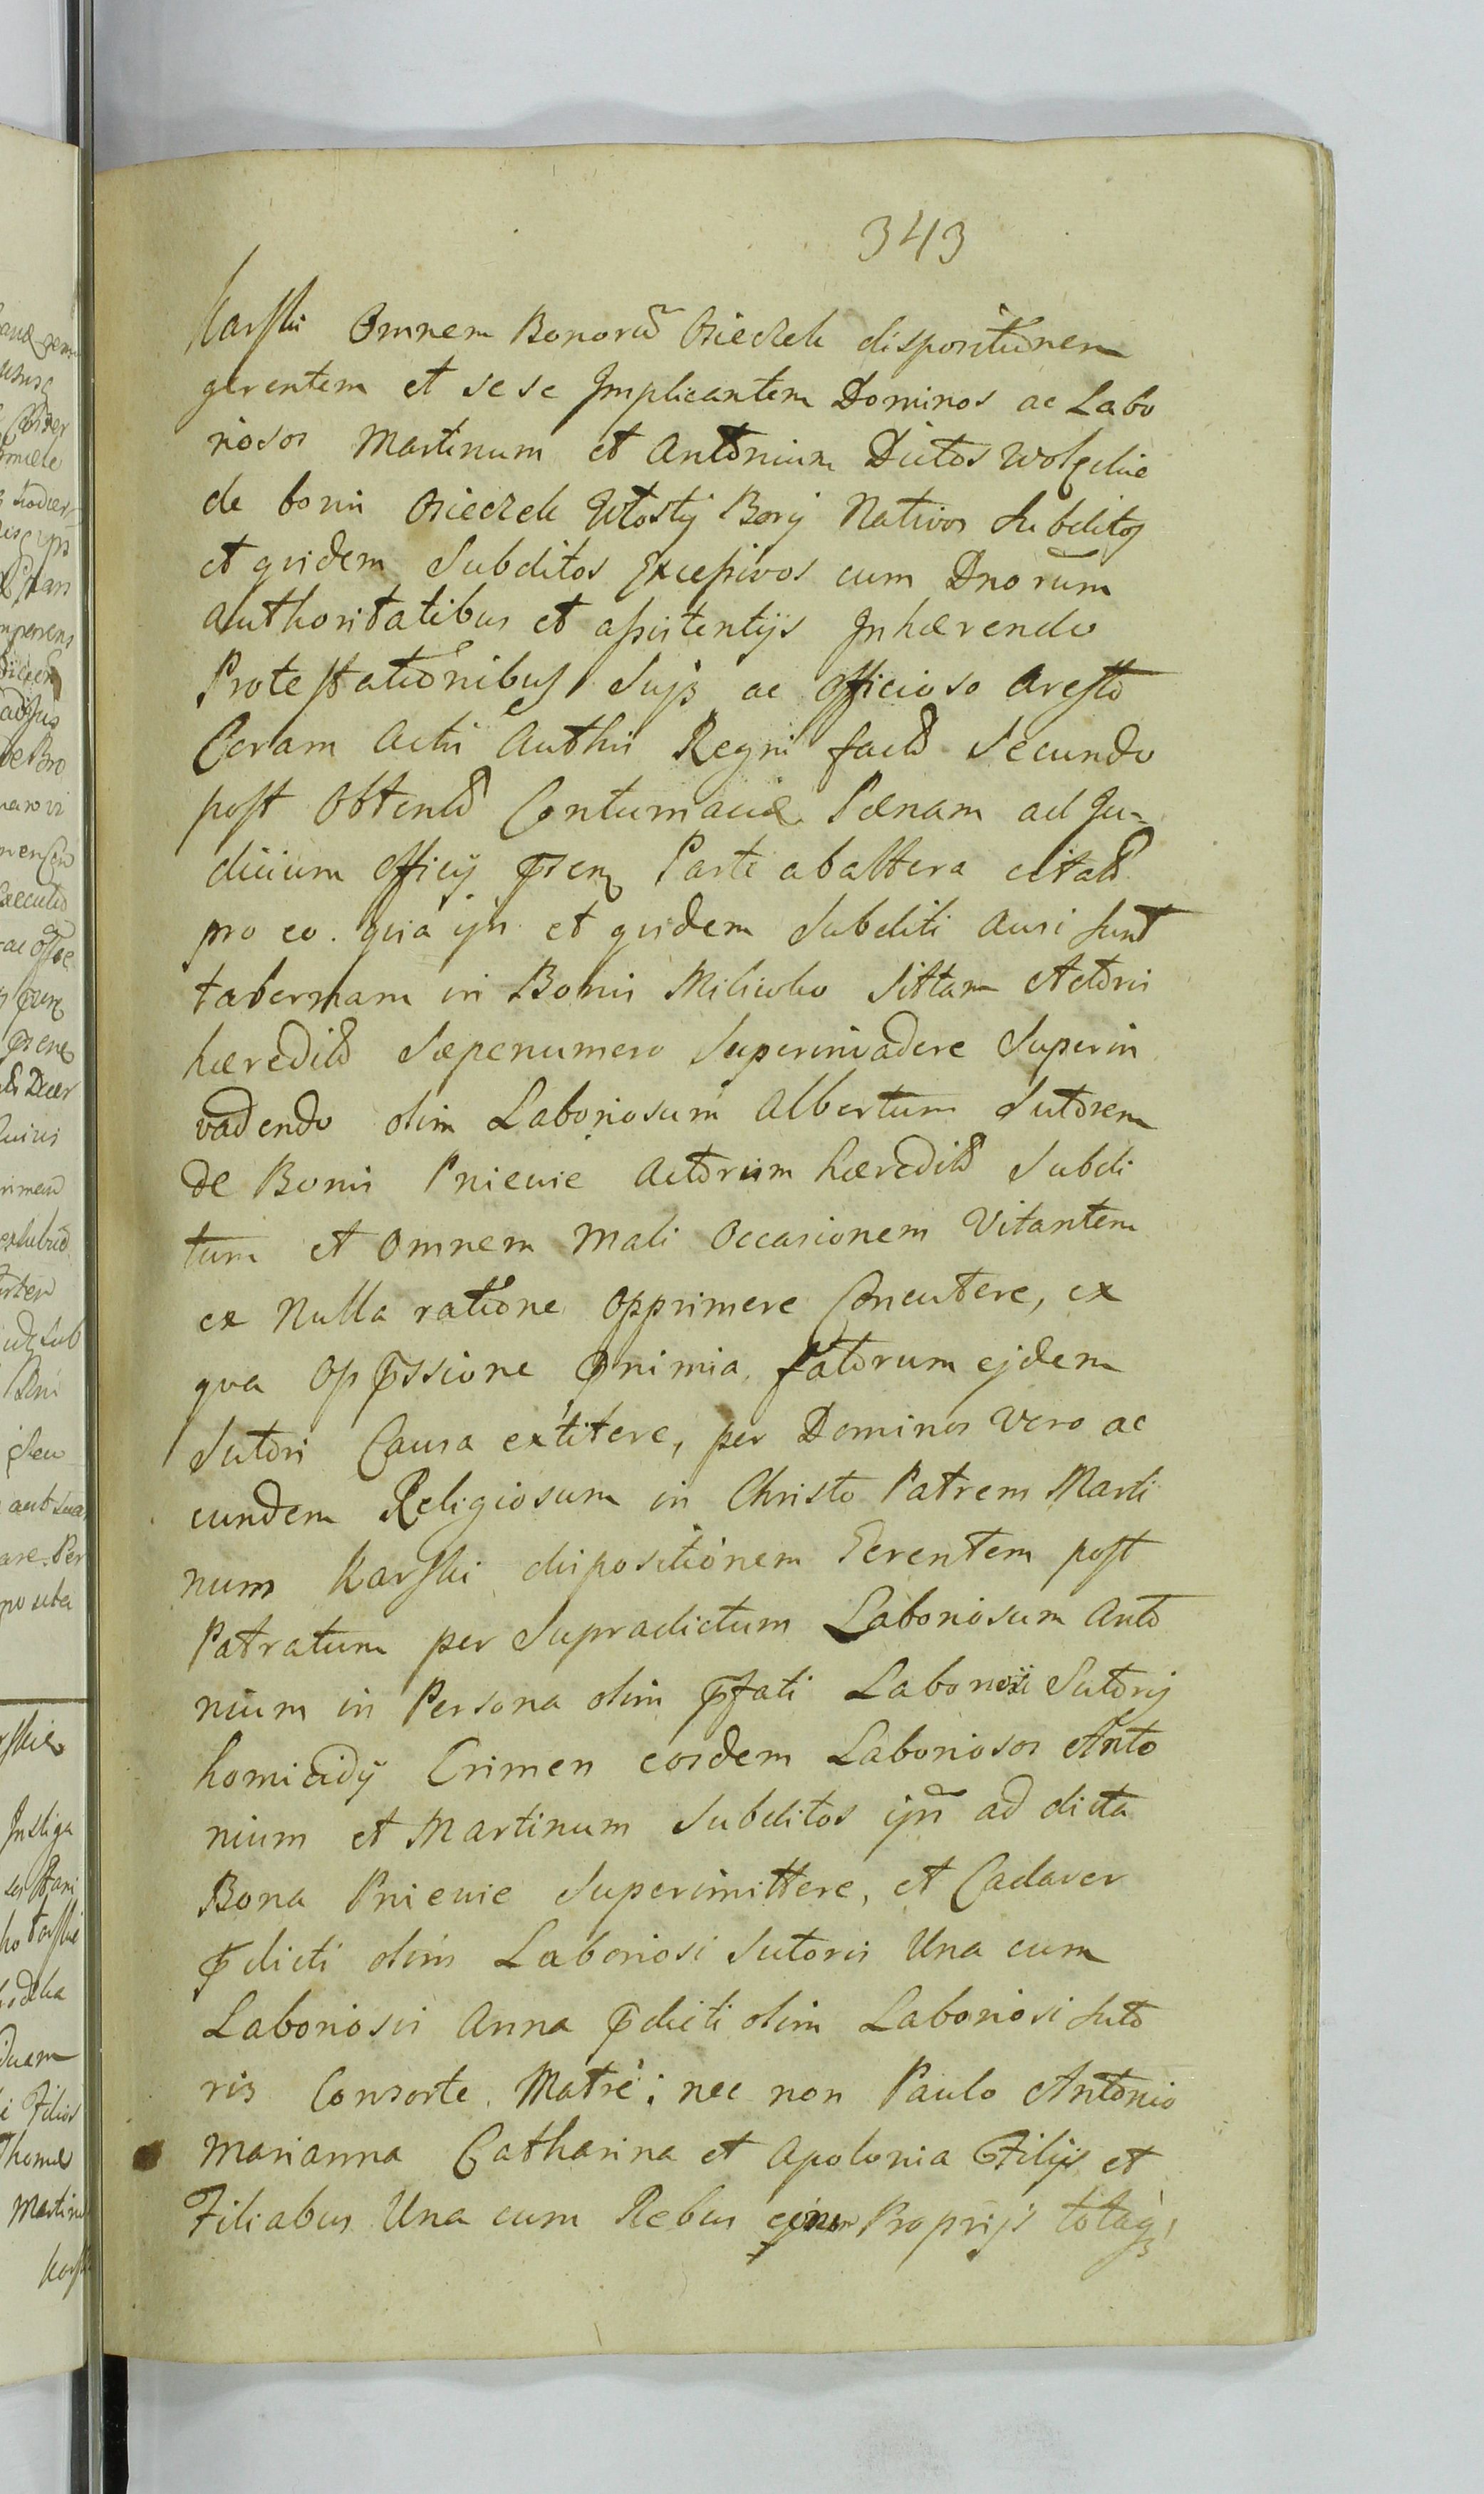 343
Karski Omnem Bonorū Osieczek dispositionem
gerentem et sese Implicantem Dominos ac Labo
riosos Martinum et Antonium Dictos
de bonis Osieczek Nativos Subditos
et quidem Subditos Excessivos cum Dnorum
Authoritatibus et assistentijs Inhærendo
Protestationibus Suis ac officioso Aresto
Coram Actis Authis Regni facto Secundo
post Obtentā Contumaciæ Pœnam ad Ju-
dicium Officij p̄sens Parte ab altera citatos
pro eo. quia ijsi et quidem Subditi Ausi sunt
tabernam in Bonis Miliwko Sittam Actoris
hæredit̃ Sæpenumero Superinvadere Superin
vadendo olim Laboriosum Albertum Sutorem
de Bonis Pniewie Actorum hæredit̃ Subdi
tum et Omnem Mali Occasionem Vitantem
ex Nulla ratione Opprimere Concutere, ex
qua Opp̄ssione p̄nimia fatorum ejdem
Sutori Causa extitere, per Dominos vero ac
eundem Religiosum in Christo Patrem Marti
num Karski dispositionem Gerentem post
Patratum per Supradictum Laboriosum Anto
nium in Persona olim p̄fati Laboriosi Sutoris
homicidij Crimen eosdem Laboriosos Anto
nium et Martinum Subditos ips̃ ad dicta
Bona Pniewie Superimittere, et Cadaver
p̄dicti olim Laboriosi Sutoris Una cum
Laboriosis Anna p̄dicti olim Laboriosi Suto
ris Consorte. Matre; nec non Paulo Antonio
Marianna Catharina et Apolonia Filijs et
Filiabus Una cum Rebus Proprijs totaq;